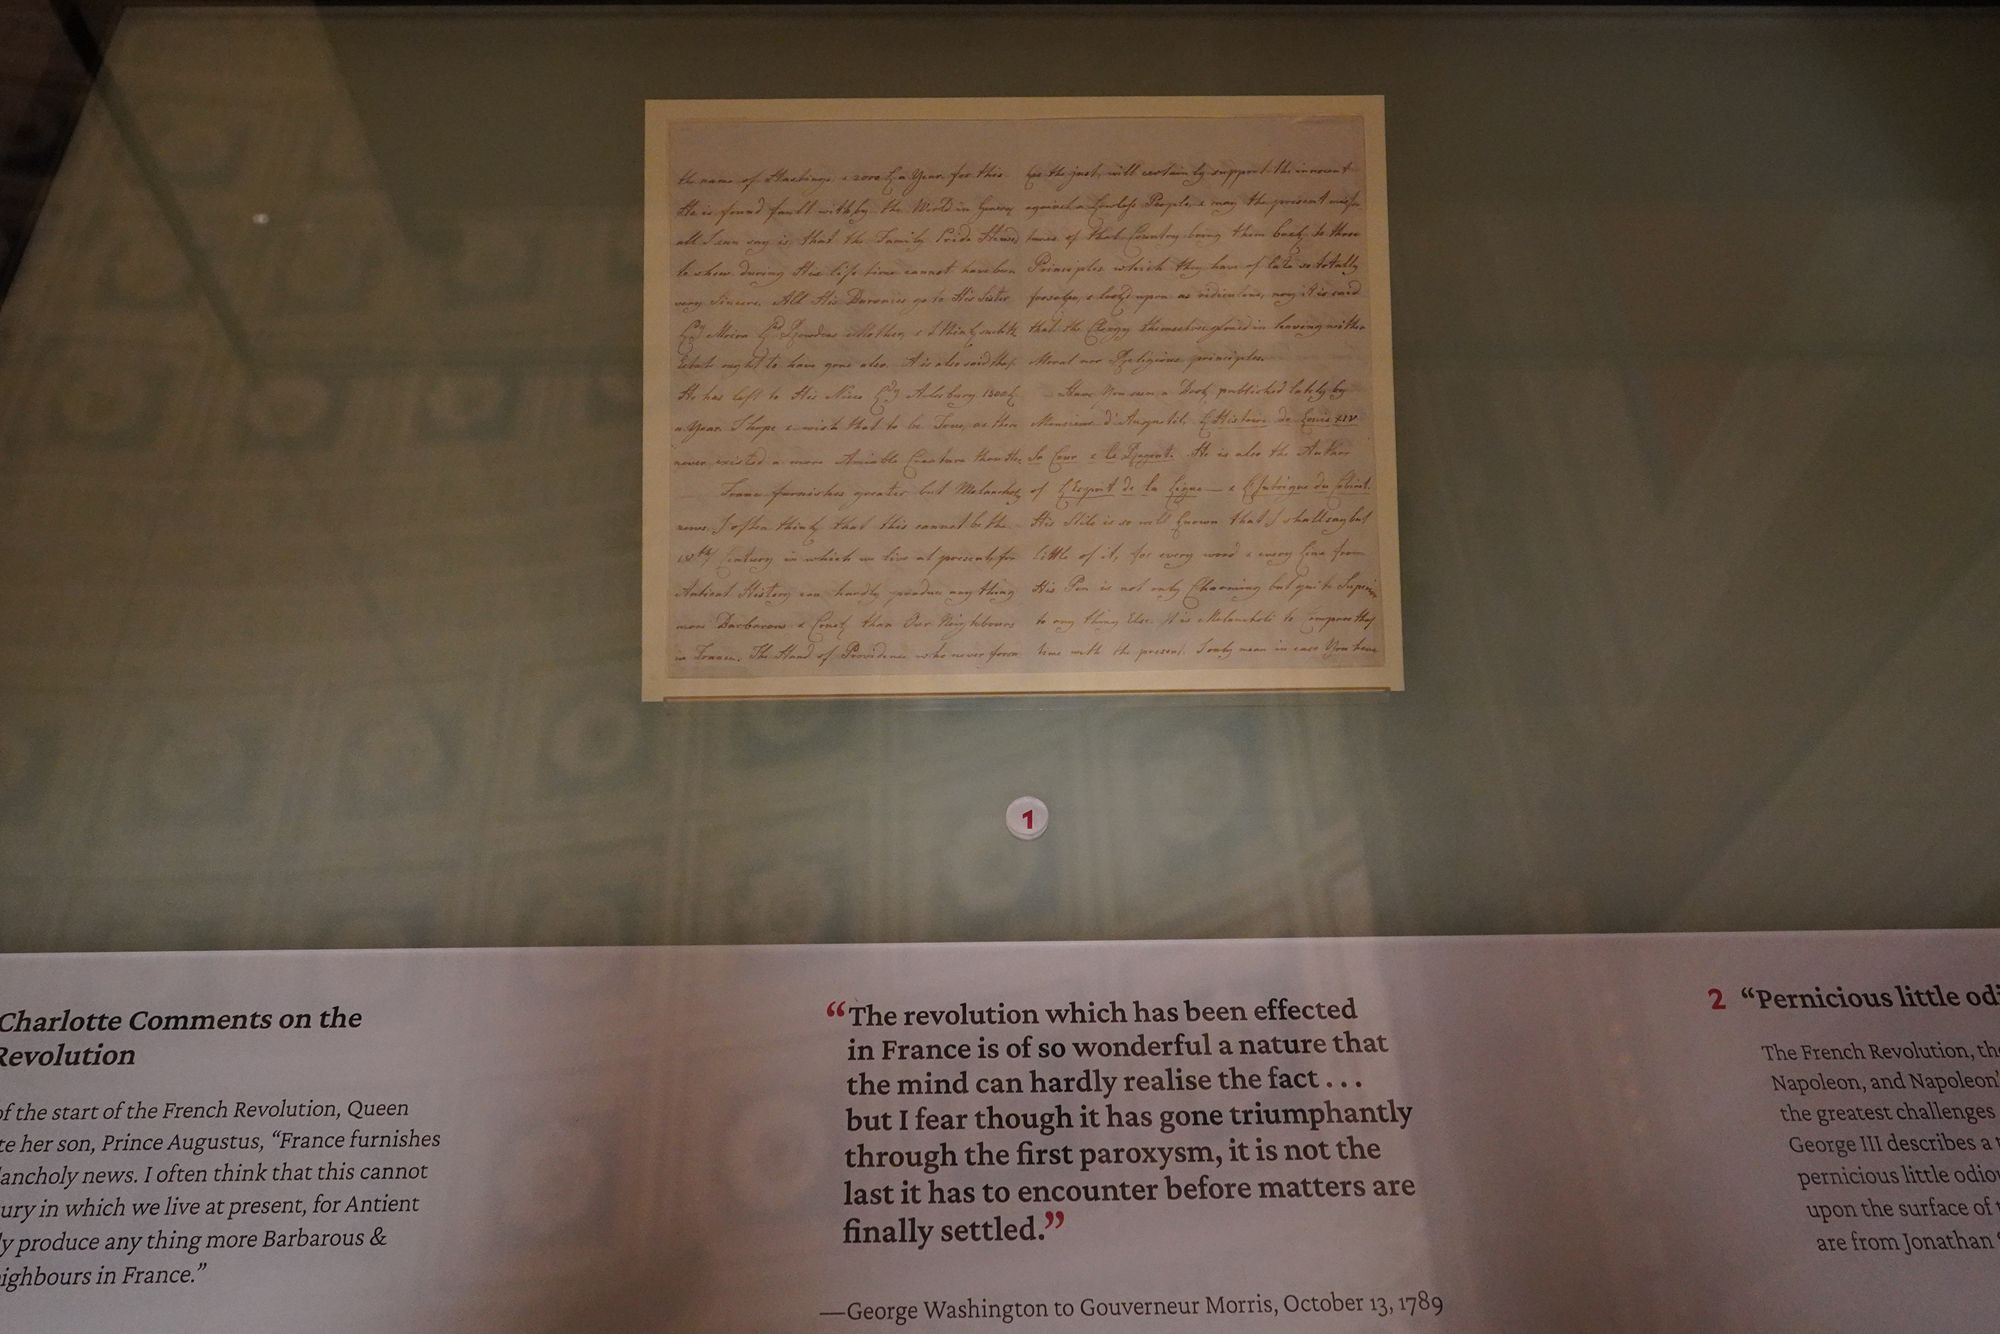 the name of Hastings, & 2000 £ a Year for this
He is found fault with by the World in
all I can say is, that the Family Pride
to shew during His life time cannot have been
very Sincere. All His Baronies go to His Sister
Ly Moira Ld Mother, & I think
Estate ought to have gone also. It is also said that
He has left to His Niece Ly Ailesbury 1500£
a Year. I hope & wish that to be True, as there
never existed a more Amiable Creature than
France furnishes greater but Melancholy
news. I often think that this cannot be the
18th Century in which we live at present, for
Antient History can hardly produce any thing
more Barbarous & Cruel than Our Neighbours
in France. The Hand of Providence who never
the just, will certainly support the innocent
against a Lawless People, & may the present
of that Country bring them back to those
Principles which they have of late so totally
forsaken, & looked upon as ridiculous, nay it is said
that the Clergy themselves in having neither
Moral nor Religious principles.
Have You seen a Book published lately by
Monsieur d'Anquetil, L'Histoire de Louis XIV
Sa Cour & le Regent. He is also the Author
of L'Esprit de la Ligue & L'Intrigue du Cabinet.
His Stile is so well known that I shall say but
little of it, for every word & every Line from
His Pen is not only Charming but quite Superior
to any thing Else. It is Melancholi to Compare that
time with the present. I only mean in case You have
1
Charlotte Comments on the
Revolution
of the start of the French Revolution, Queen
te her son, Prince Augustus, “France furnishes
lancholy news. I often think that this cannot
ury in which we live at present, for Antient
ly produce any thing more Barbarous &
ighbours in France.”
“The revolution which has been effected
in France is of so wonderful a nature that
the mind can hardly realise the fact . . .
but I fear though it has gone triumphantly
through the first paroxysm, it is not the
last it has to encounter before matters are
finally settled.”
—George Washington to Gouverneur Morris, October 13, 1789
2 “Pernicious little odi
The French Revolution, the
Napoleon, and Napoleon’
the greatest challenges
George III describes a
pernicious little odio
upon the surface of
are from Jonathan